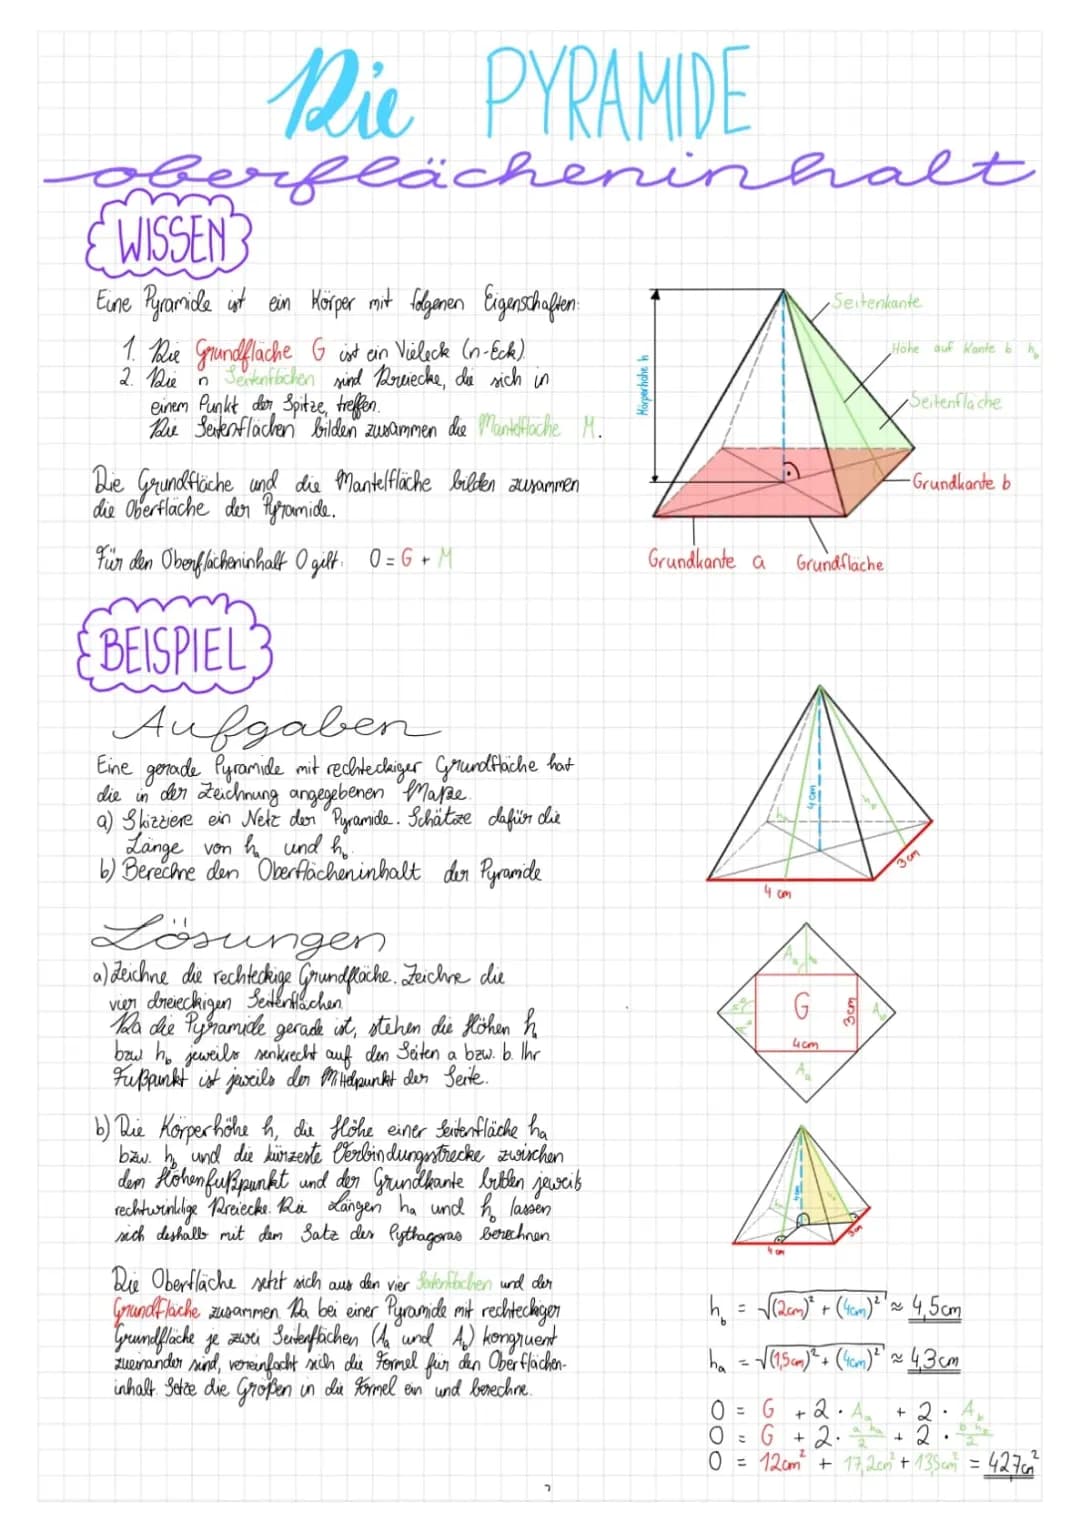 Die PYRAMIDE
oberflächeninhalt
WISSEN
Eine Pyramide ist ein Körper mit folgenen Eigenschaften:
1. Die Grundfläche G ist ein Vieleck (n-Eck).
2. Die n Seitenflächen sind Dreiecke, die sich in
einem Punkt der Spitze, treffen.
Die Seitenflächen bilden zusammen die Mantelfläche M.
Die Grundfläche und die Mantelfläche bilden zusammen
die Oberfläche der Pyramide.
Für den Oberflächeninhalt O gilt: O = G + M
Körperhöhe h
Seitenkante
Höhe auf Kante b h_b
Seitenfläche
Grundkante b
Grundkante a
Grundfläche
BEISPIEL
Aufgaben
Eine gerade Pyramide mit rechteckiger Grundfläche hat
die in der Zeichnung angegebenen Maße.
a) Skizziere ein Netz der Pyramide. Schätze dafür die
Länge von h_a und h_b.
b) Berechne den Oberflächeninhalt der Pyramide
4 cm
h_a
h_b
3 cm
4 cm
Lösungen
a) Zeichne die rechteckige Grundfläche. Zeichne die
vier dreieckigen Seitenflächen.
Da die Pyramide gerade ist, stehen die Höhen h_a
bzw h_b jeweils senkrecht auf den Seiten a bzw. b. Ihr
Fußpunkt ist jeweils der Mittelpunkt der Seite.
A_a h_a
G
3cm
A_b
4cm
A_a
b) Die Körperhöhe h, die Höhe einer Seitenfläche ha
bzw. h_b und die kürzeste Verbindungsstrecke zwischen
dem Höhenfußpunkt und der Grundkante bilden jeweils
rechtwinklige Dreiecke. Die Längen ha und h_b lassen
sich deshalb mit dem Satz des Pythagoras berechnen.
4cm
3cm
4 cm
Die Oberfläche setzt sich aus den vier Seitenflächen und der
Grundfläche zusammen. Da bei einer Pyramide mit rechteckiger
Grundfläche je zwei Seitenflächen (A_a und A_b) kongruent
zueinander sind, vereinfacht sich die Formel für den Oberflächen-
inhalt. Setze die Größen in die Formel ein und berechne.
h_b = √(2cm)² + (4cm)² ≈ 4,5cm
h_a = √(1,5cm)² + (4cm)² ≈ 4,3cm
O = G + 2 · A_a + 2 · A_b
O = G + 2 · a · h_a / 2 + 2 · b · h_b / 2
O = 12cm² + 17,2cm² + 13,5cm² = 42,7cm²